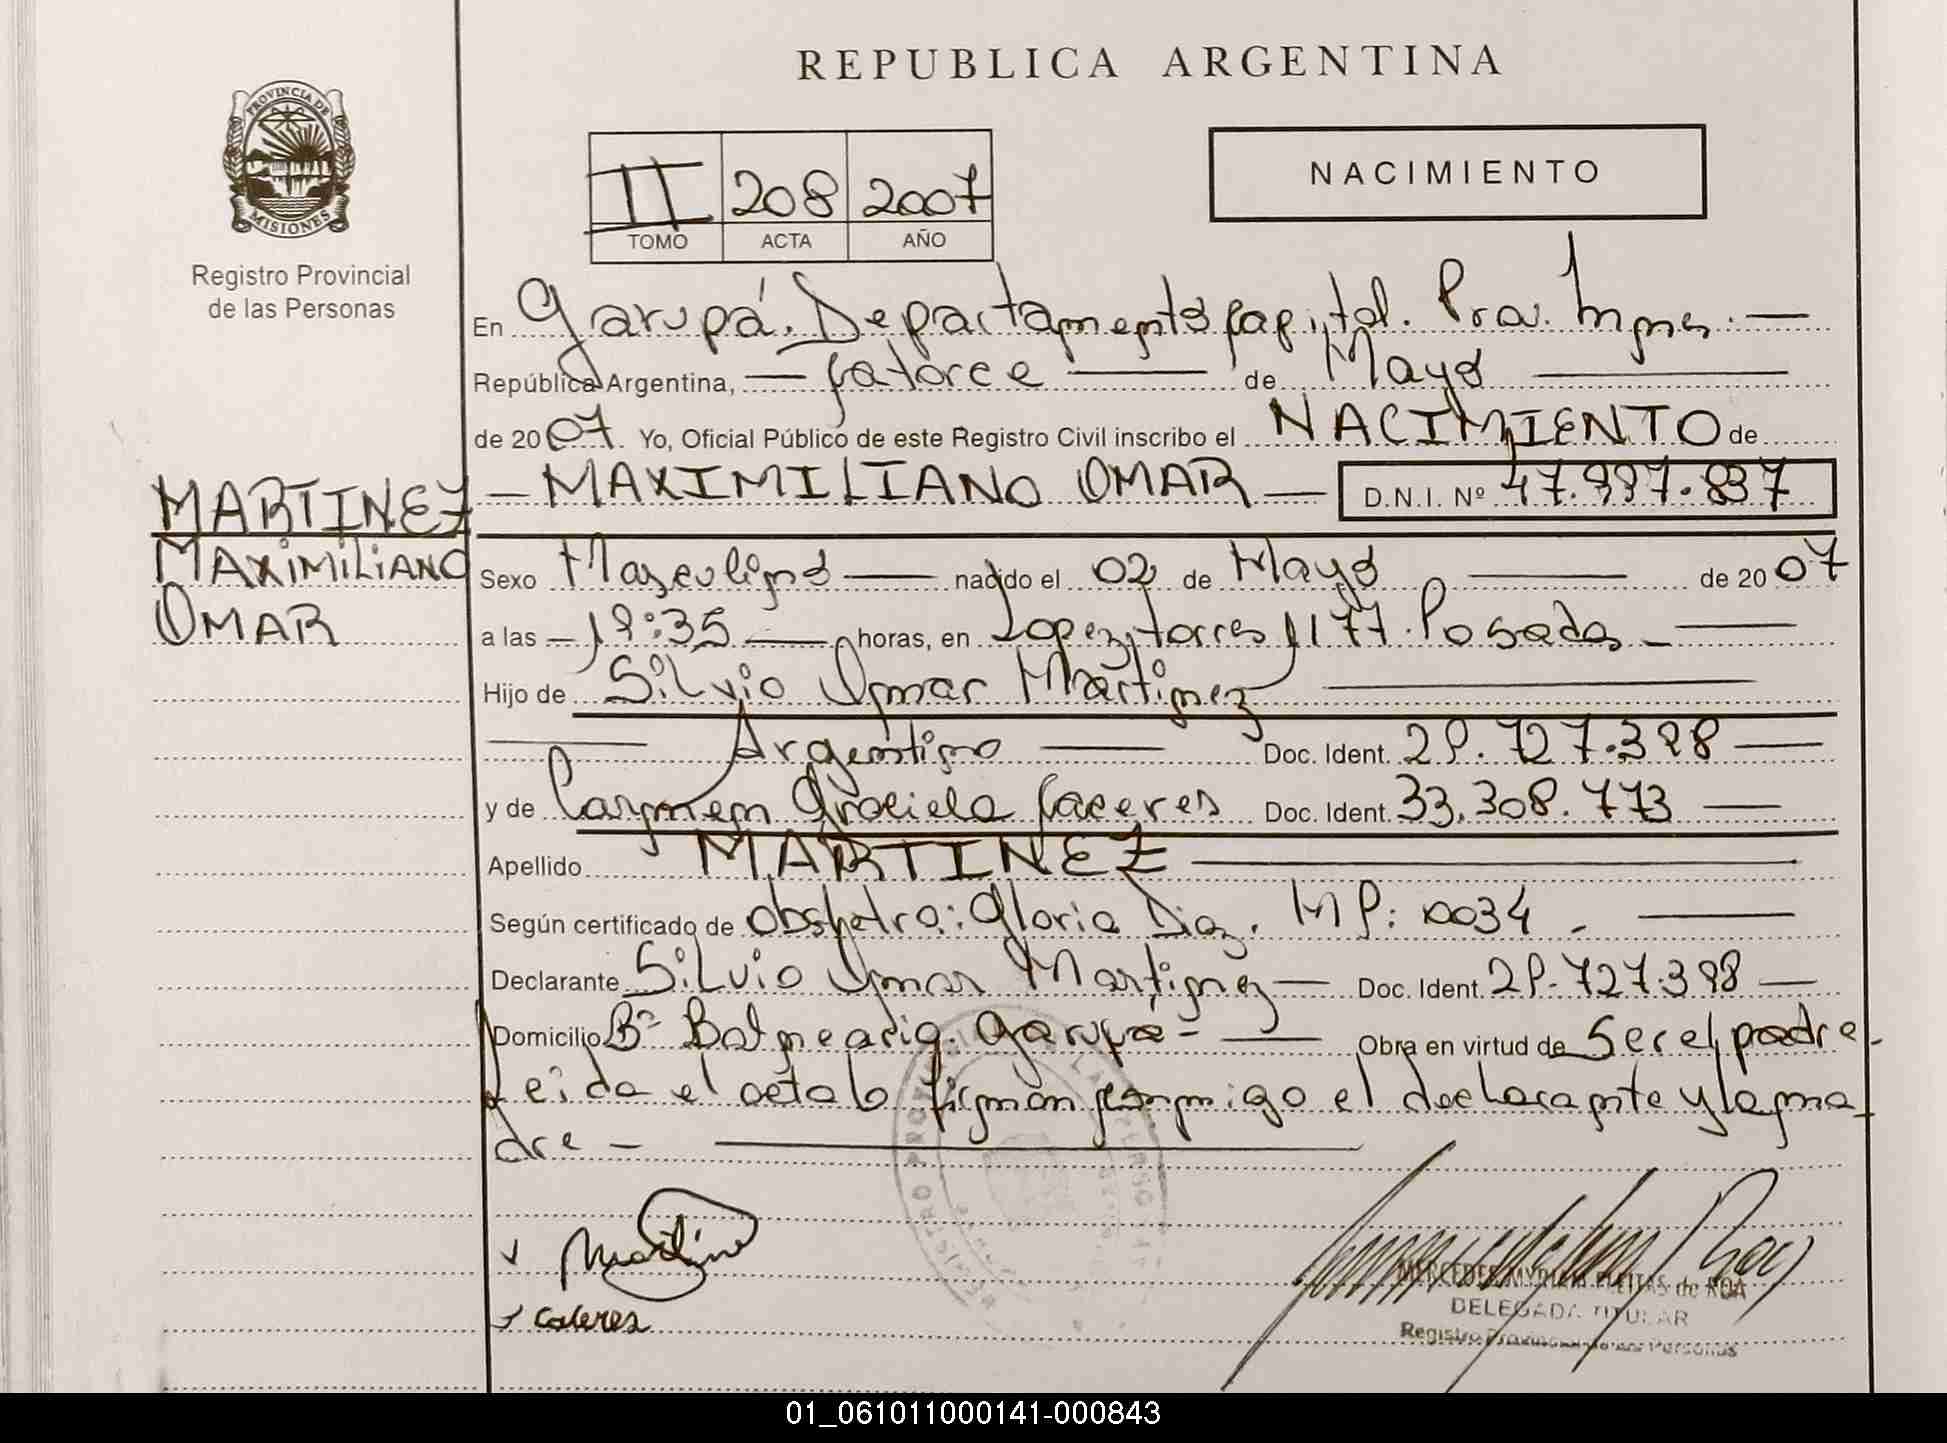 REPUBLICA ARGENTINA
PROVINCIA DE
MISIONES
Registro Provincial
de las Personas
II 208 2007
TOMO ACTA AÑO
NACIMIENTO
En Garupá. Departamento Capital. Prov. Mnes. —
República Argentina, — Catorce — de Mayo —
de 2007. Yo, Oficial Público de este Registro Civil inscribo el NACIMIENTO de
MARTINEZ — MAXIMILIANO OMAR — D.N.I. Nº 47.997.897
MAXIMILIANO
OMAR
Sexo Masculino — nacido el 02 de Mayo — de 2007
a las — 19:35 — horas, en Lopez y torres 1177. Posadas —
Hijo de Silvio Omar Martinez —
— Argentino — Doc. Ident. 29.727.398 —
y de Carmen Graciela Caceres Doc. Ident. 33.308.773 —
Apellido MARTINEZ —
Según certificado de obstetra: Gloria Diaz. MP: 0034 —
Declarante Silvio Omar Martinez — Doc. Ident. 29.727.398 —
Domicilio Bº Balnearia Garupá — Obra en virtud de Ser el padre.
Leida el acta lo firman conmigo el declarante y la ma-
dre —
Martinez
Caceres
MERCEDES MYRIAM FLEITAS de ROA
DELEGADA TITULAR
Registro Provincial de las Personas
01_061011000141-000843